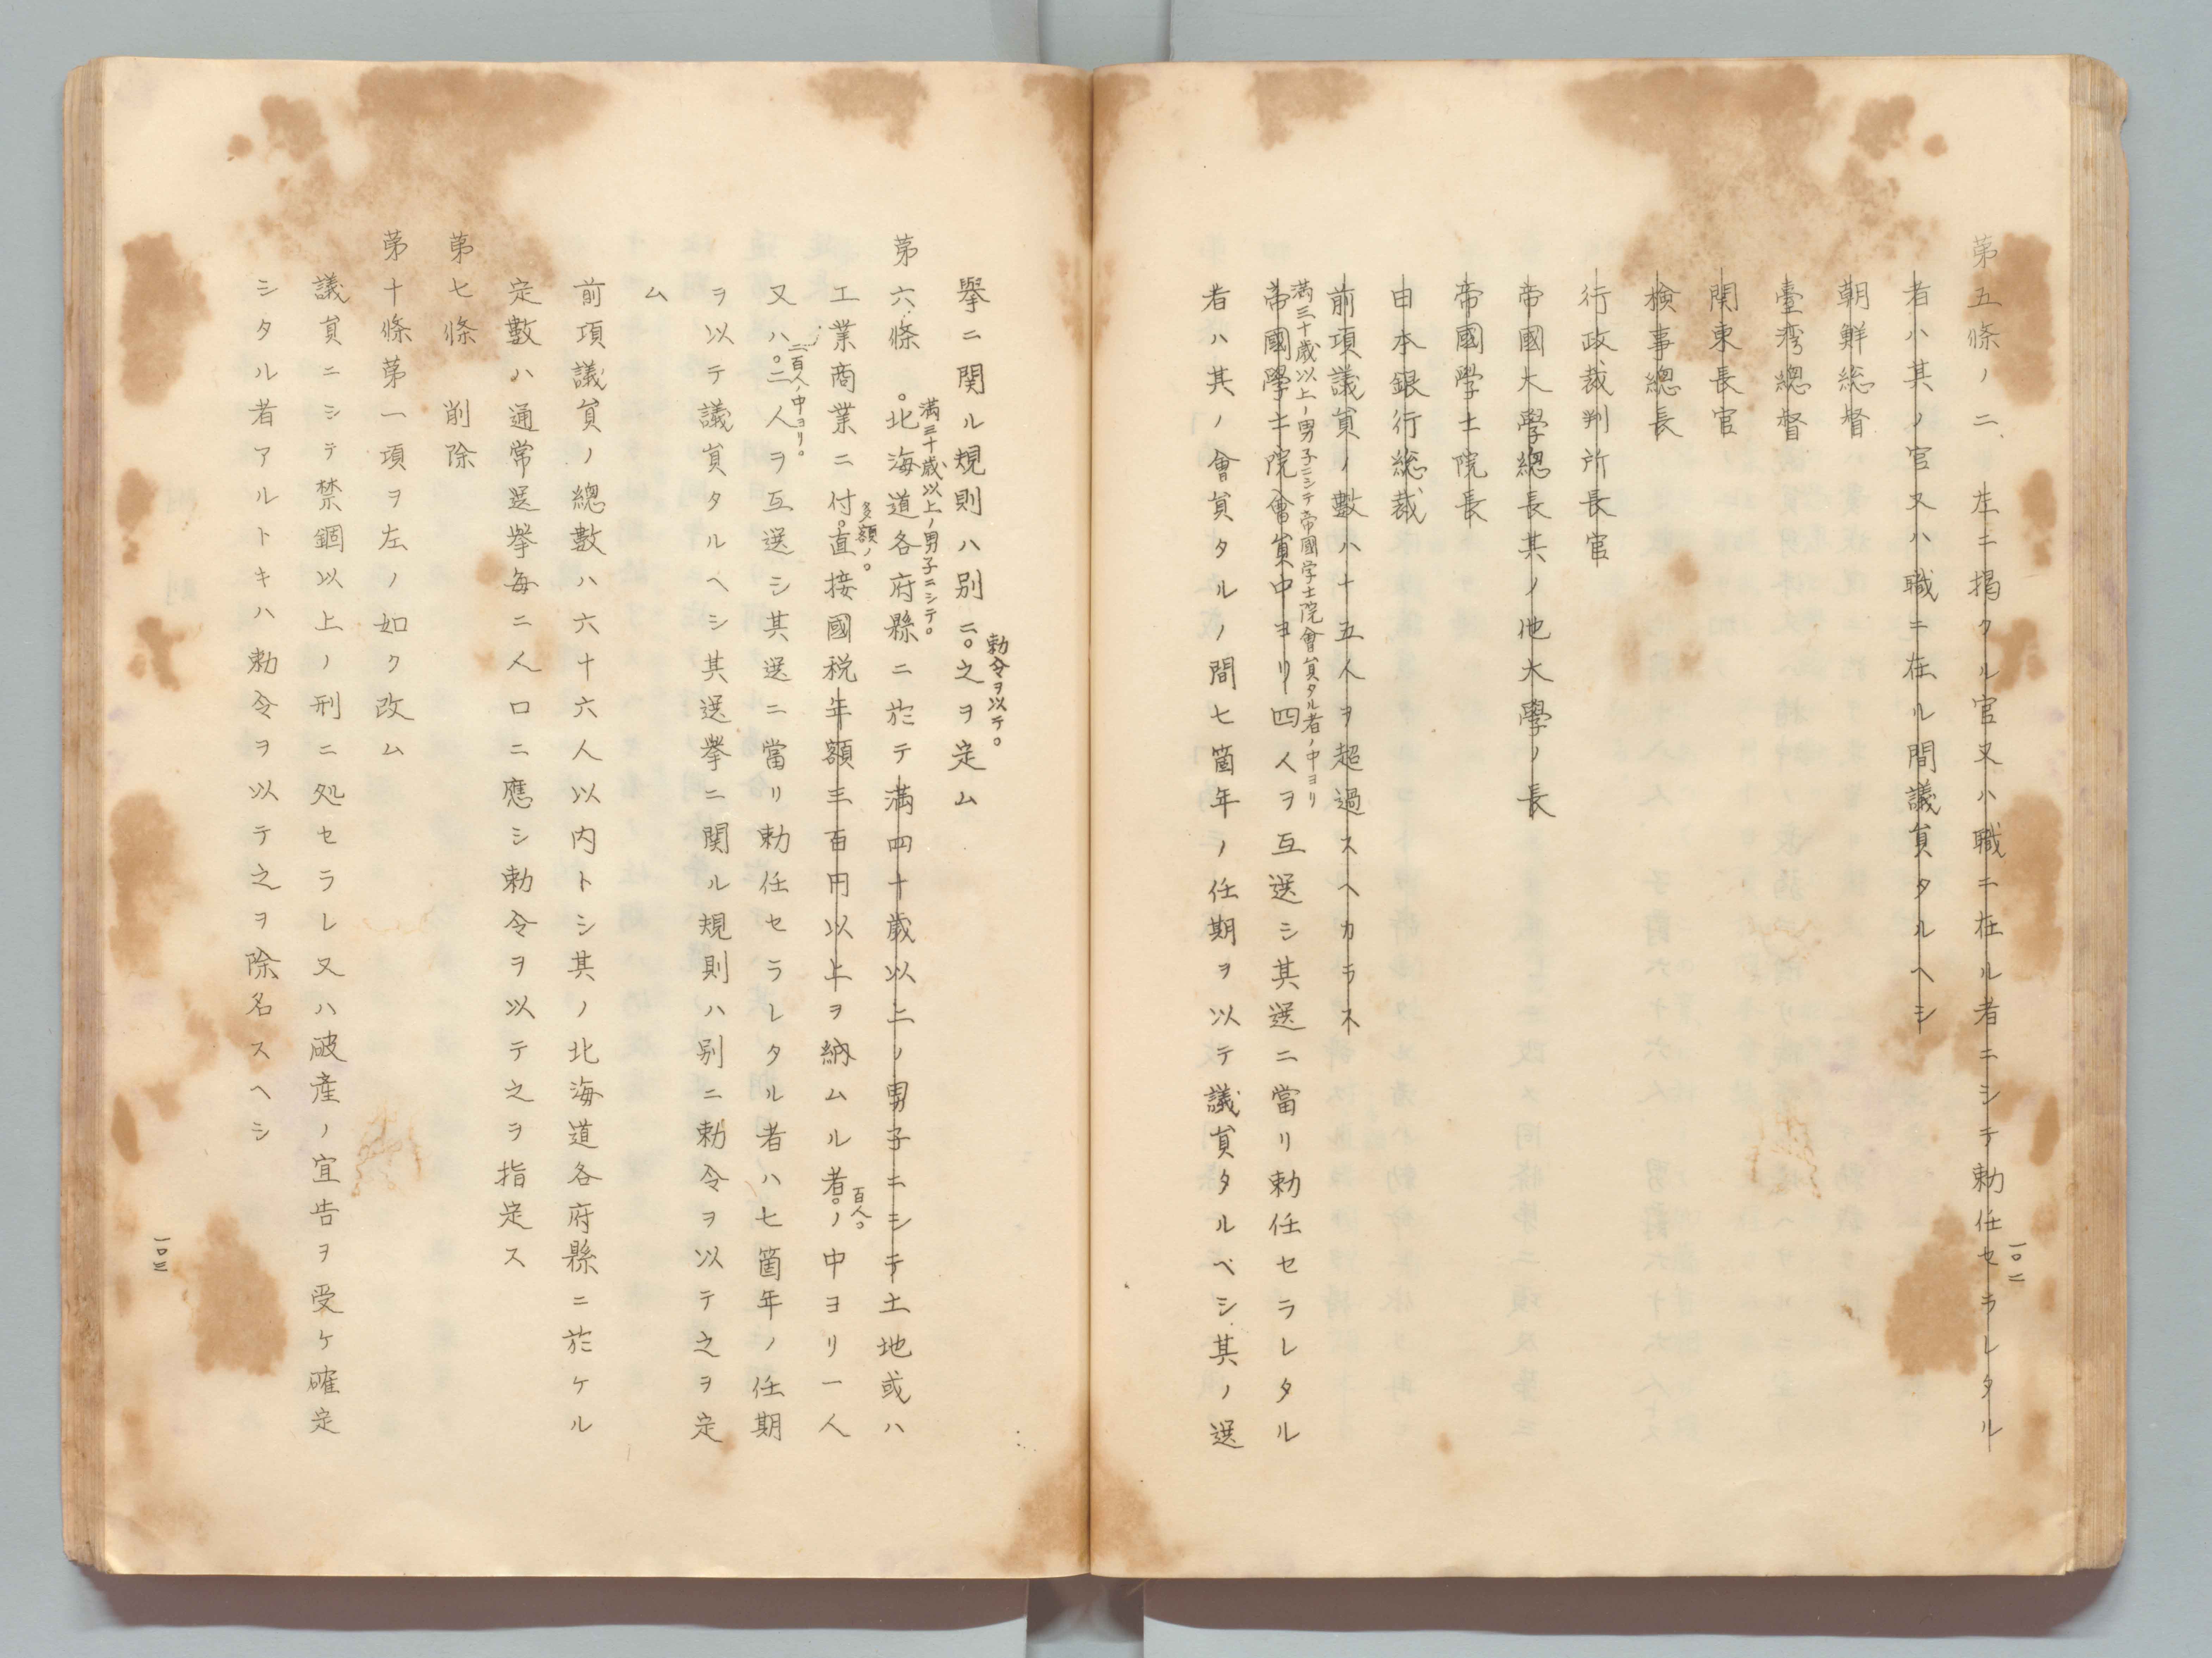 第五條ノ二、左ニ掲クル官又ハ職ニ在ル者ニシテ勅任セラレタル
者ハ其ノ官又ハ職ニ在ル間議員タルヘシ
朝鮮総督
臺湾總督
関東長官
検事總長
行政裁判所長官
帝國大學總長其ノ他大學ノ長
帝國學士院長
日本銀行総裁
前項議員ノ數ハ十五人ヲ超過スヘカラス
満三十歳以上ノ男子ニシテ帝國学士院會員タル者ノ中ヨリ
帝國學士院會員中ヨリ四人ヲ互選シ其選ニ當リ勅任セラレタル
者ハ其ノ會員タルノ間七箇年ノ任期ヲ以テ議員タルベシ其ノ選
一〇二
勅令ヲ以テ。
擧ニ関ル規則ハ別ニ。之ヲ定ム
満三十歳以上ノ男子ニシテ。
第六條 。北海道各府縣ニ於テ満四十歳以上ノ男子ニシテ土地或ハ
多額ノ。
百人。
工業商業ニ付。直接國税年額三百円以上ヲ納ムル者。ノ中ヨリ一人
二百人ノ中ヨリ。
又ハ。二人ヲ互選シ其選ニ當リ勅任セラレタル者ハ七箇年ノ任期
ヲ以テ議員タルヘシ其選挙ニ関ル規則ハ別ニ勅令ヲ以テ之ヲ定
ム
前項議員ノ總數ハ六十六人以内トシ其ノ北海道各府縣ニ於ケル
定數ハ通常選擧毎ニ人口ニ應シ勅令ヲ以テ之ヲ指定ス
第七條 削除
第十條第一項ヲ左ノ如ク改ム
議員ニシテ禁錮以上ノ刑ニ処セラレ又ハ破産ノ宣告ヲ受ケ確定
シタル者アルトキハ勅令ヲ以テ之ヲ除名スヘシ
一〇三